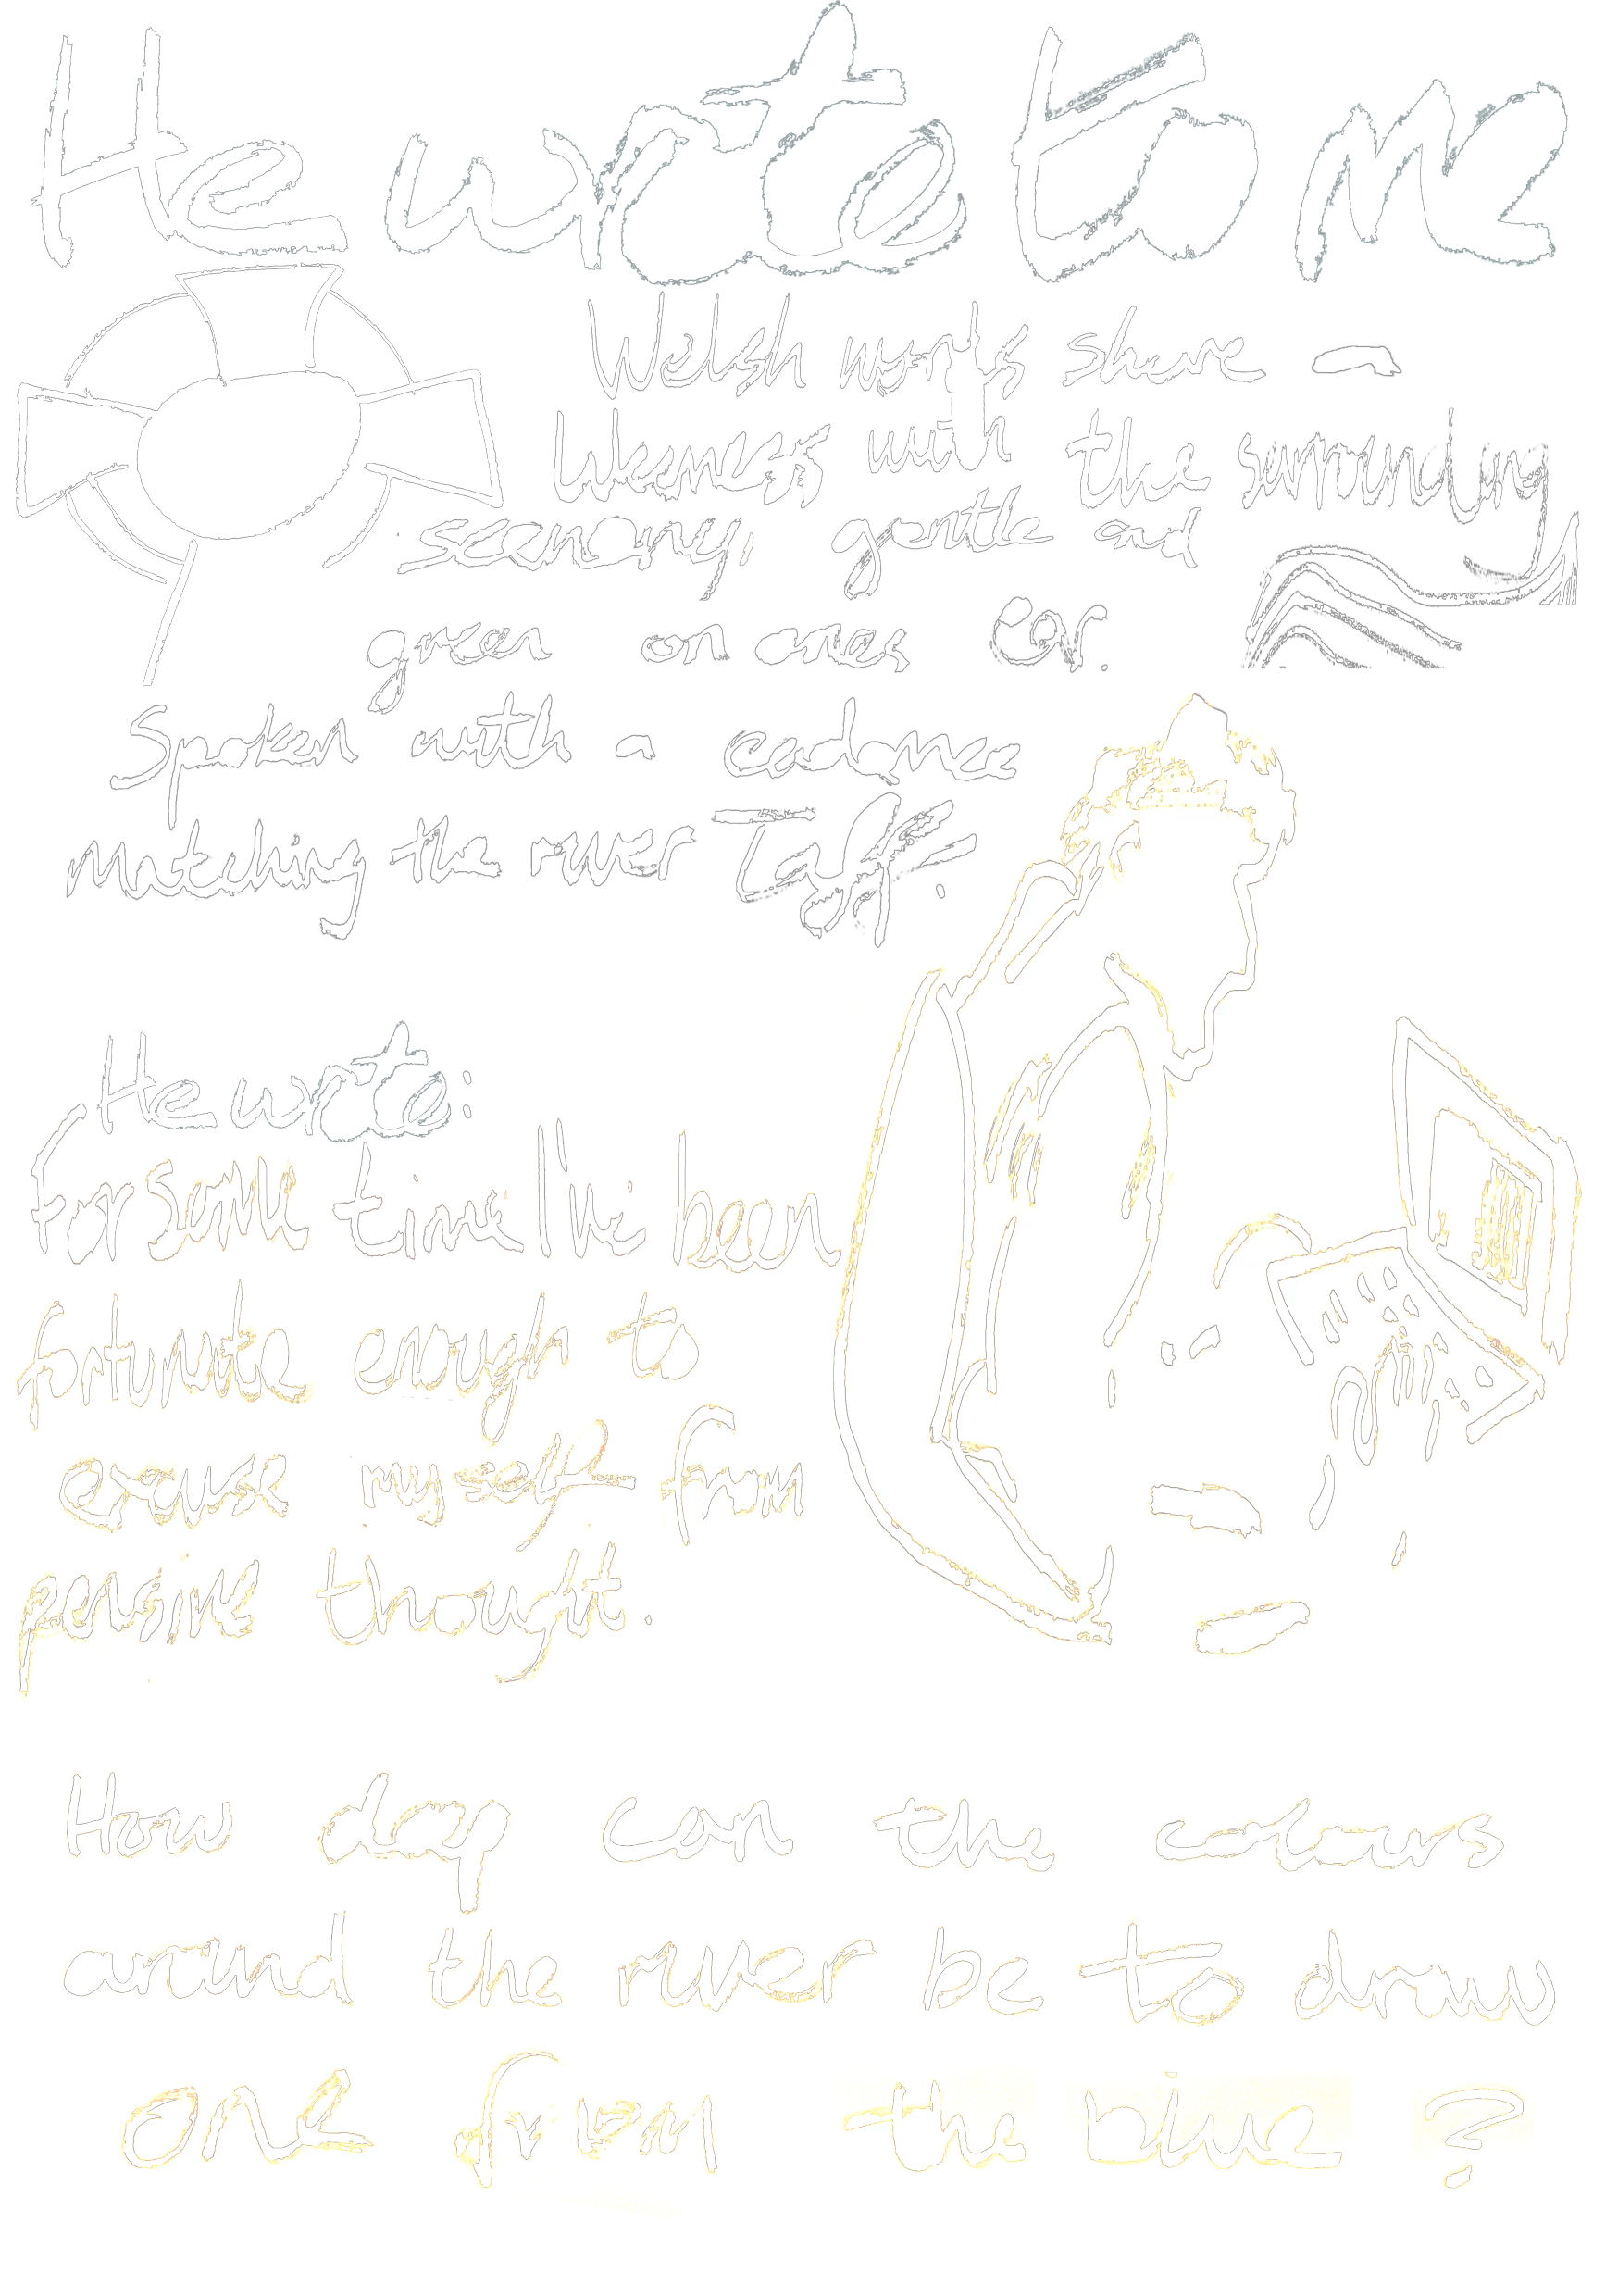 He wrote to me
Welsh words share a
likeness with the surrounding
scenery, gentle and
green on ones ear.
Spoken with a cadence
matching the river Taff.
He wrote:
For some time I've been
fortunate enough to
excuse myself from
pensive thought.
How deep can the colours
around the river be to draw
one from the blue?